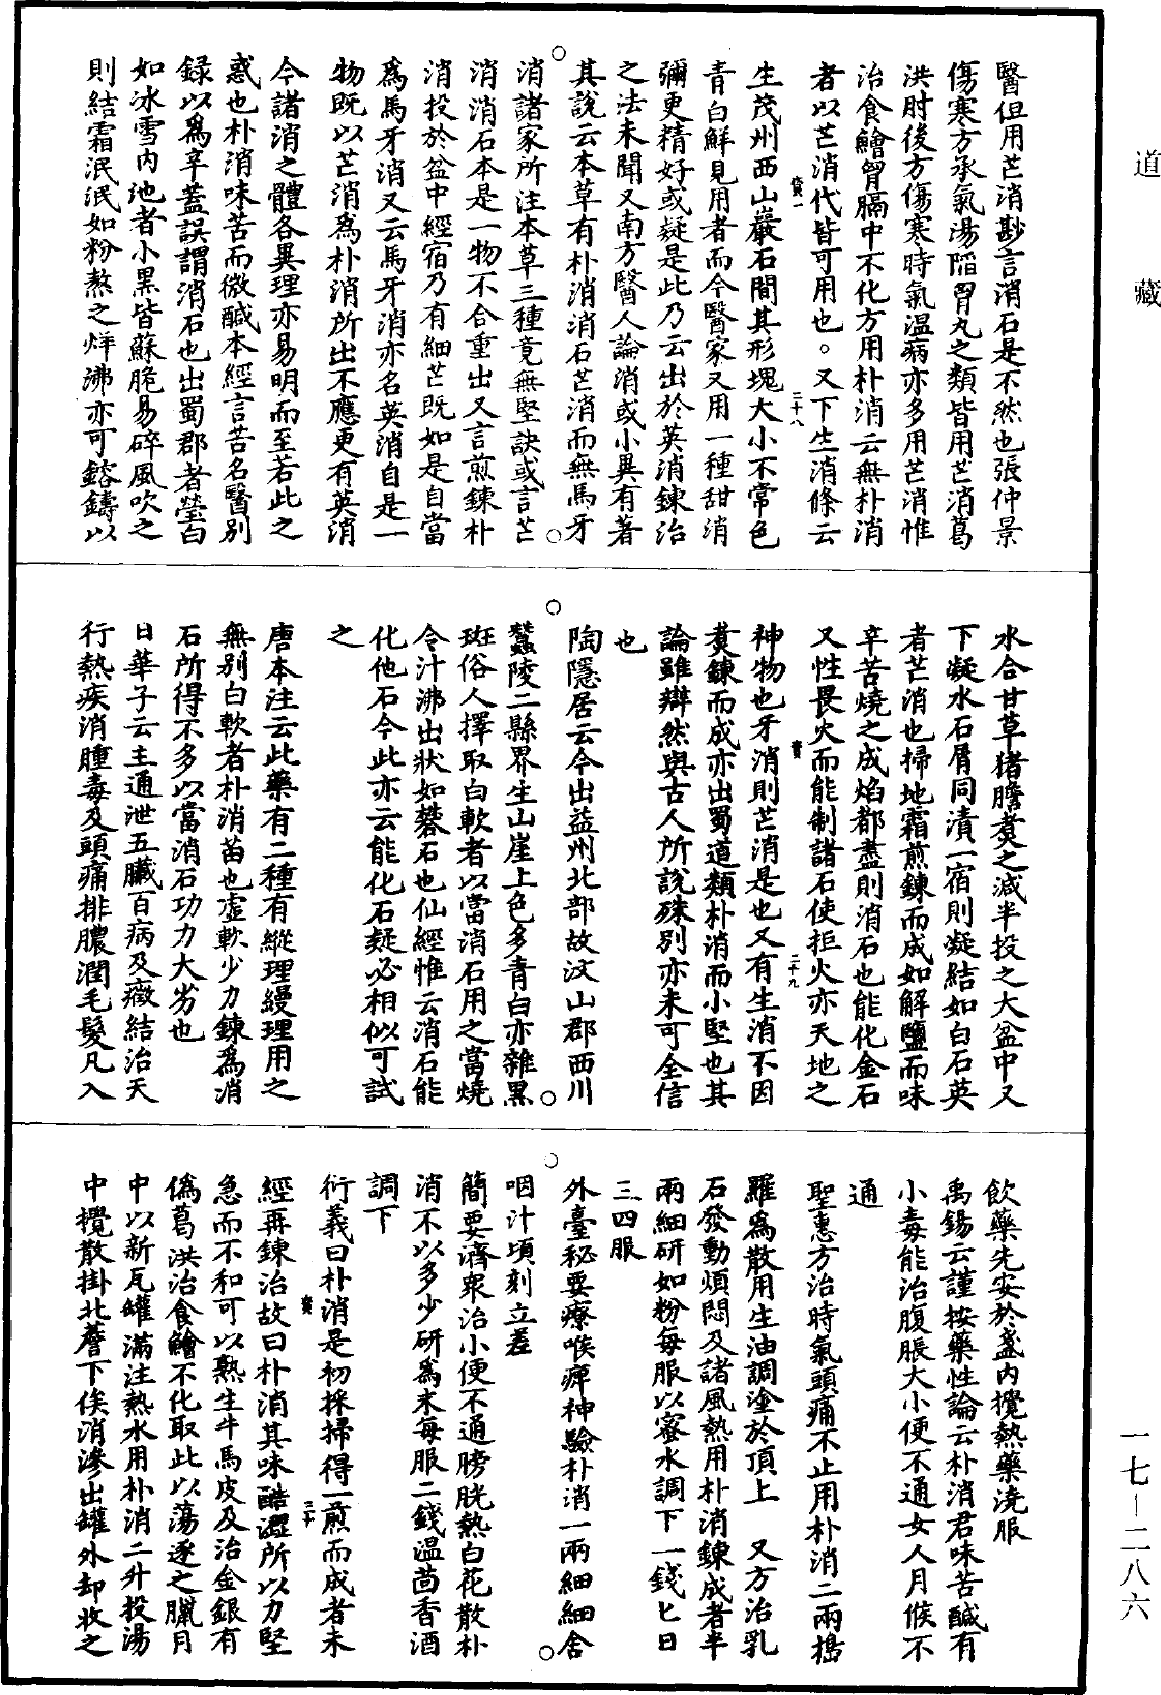 道藏
醫但用芒消尠言消石是不然也張仲景
傷寒方承氣湯陷胷丸之類皆用芒消葛
洪肘後方傷寒時氣温病亦多用芒消惟
治食鱠胷膈中不化方用朴消云無朴消
者以芒消代皆可用也。又下生消條云
生茂州西山巖石間其形塊大小不常色
青白鮮見用者而今醫家又用一種甜消
彌更精好或疑是此乃云出於英消鍊治
之法未聞又南方醫人論消或小異有著
其說云本草有朴消消石芒消而無馬牙
消諸家所注本草三種竟無堅訣或言芒
消消石本是一物不合重出又言煎鍊朴
消投於盆中經宿乃有細芒既如是自當
爲馬牙消又云馬牙消亦名英消自是一
物既以芒消爲朴消所出不應更有英消
今諸消之體各異理亦易明而至若此之
惑也朴消味苦而微醎本經言苦名醫别
録以爲辛蓋誤謂消石也出蜀郡者瑩白
如冰雪内地者小黑皆蘇脆易碎風吹之
則結霜泯泯如粉熬之烊沸亦可鎔鑄以
水合甘草猪膽煑之減半投之大盆中又
下凝水石屑同漬一宿則凝結如白石英
者芒消也掃地霜煎鍊而成如解鹽而味
辛苦燒之成焰都盡則消石也能化金石
又性畏火而能制諸石使拒火亦天地之
神物也牙消則芒消是也又有生消不因
煑鍊而成亦出蜀道類朴消而小堅也其
論雖辯然與古人所說殊别亦未可全信
也
陶隱居云今出益州北部故汶山郡西川
蠶陵二縣界生山崖上色多青白亦雜黑
斑俗人擇取白軟者以當消石用之當燒
令汁沸出狀如礬石也仙經惟云消石能
化他石今此亦云能化石疑必相似可試
之
唐本注云此藥有二種有縱理縵理用之
無别白軟者朴消苗也虚軟少力鍊爲消
石所得不多以當消石功力大劣也
日華子云主通泄五臟百病及癥結治天
行熱疾消腫毒及頭痛排膿潤毛髮凡入
飲藥先安於盞内攪熱藥澆服
禹錫云謹按藥性論云朴消君味苦醎有
小毒能治腹脹大小便不通女人月候不
通
聖惠方治時氣頭痛不止用朴消二兩搗
羅爲散用生油調塗於頂上　又方治乳
石發動煩悶及諸風熱用朴消鍊成者半
兩細研如粉每服以蜜水調下一錢匕日
三四服
外臺秘要療喉痹神驗朴消一兩細細含
咽汁頃刻立差
簡要濟衆治小便不通膀胱熱白花散朴
消不以多少研爲末每服二錢温茴香酒
調下
衍義曰朴消是初採掃得一煎而成者未
經再鍊治故曰朴消其味酷澀所以力堅
急而不和可以熟生牛馬皮及治金銀有
僞葛洪治食鱠不化取此以蕩逐之臘月
中以新瓦罐滿注熱水用朴消二升投湯
中攪散掛北簷下俟消滲出罐外却收之
一七－二八六